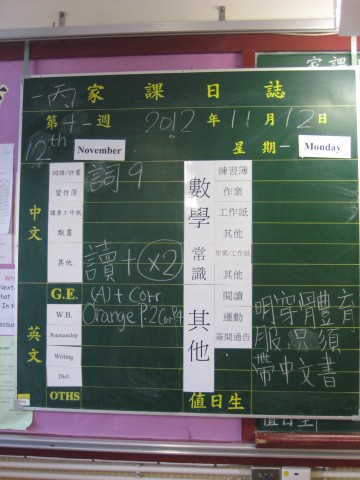 一丙 家課日誌
第 4 週 2012 年 11 月 12 日
12th November 星期一 Monday
中文
詞語/抄書 詞 9
習作簿
讀書工作紙
默書
其他 讀+(x2)
英文
G.E. (A) + Corr
W.B. Orange P.2 Cor P.4
Penmanship
Writing
Dict.
OTHS
數學
練習簿
作業
工作紙
其他
常識
作業/工作紙
其他
其他
閱讀
運動
簽閱通告
明穿體育
服 只須
帶中文書
值日生
家課
值日生